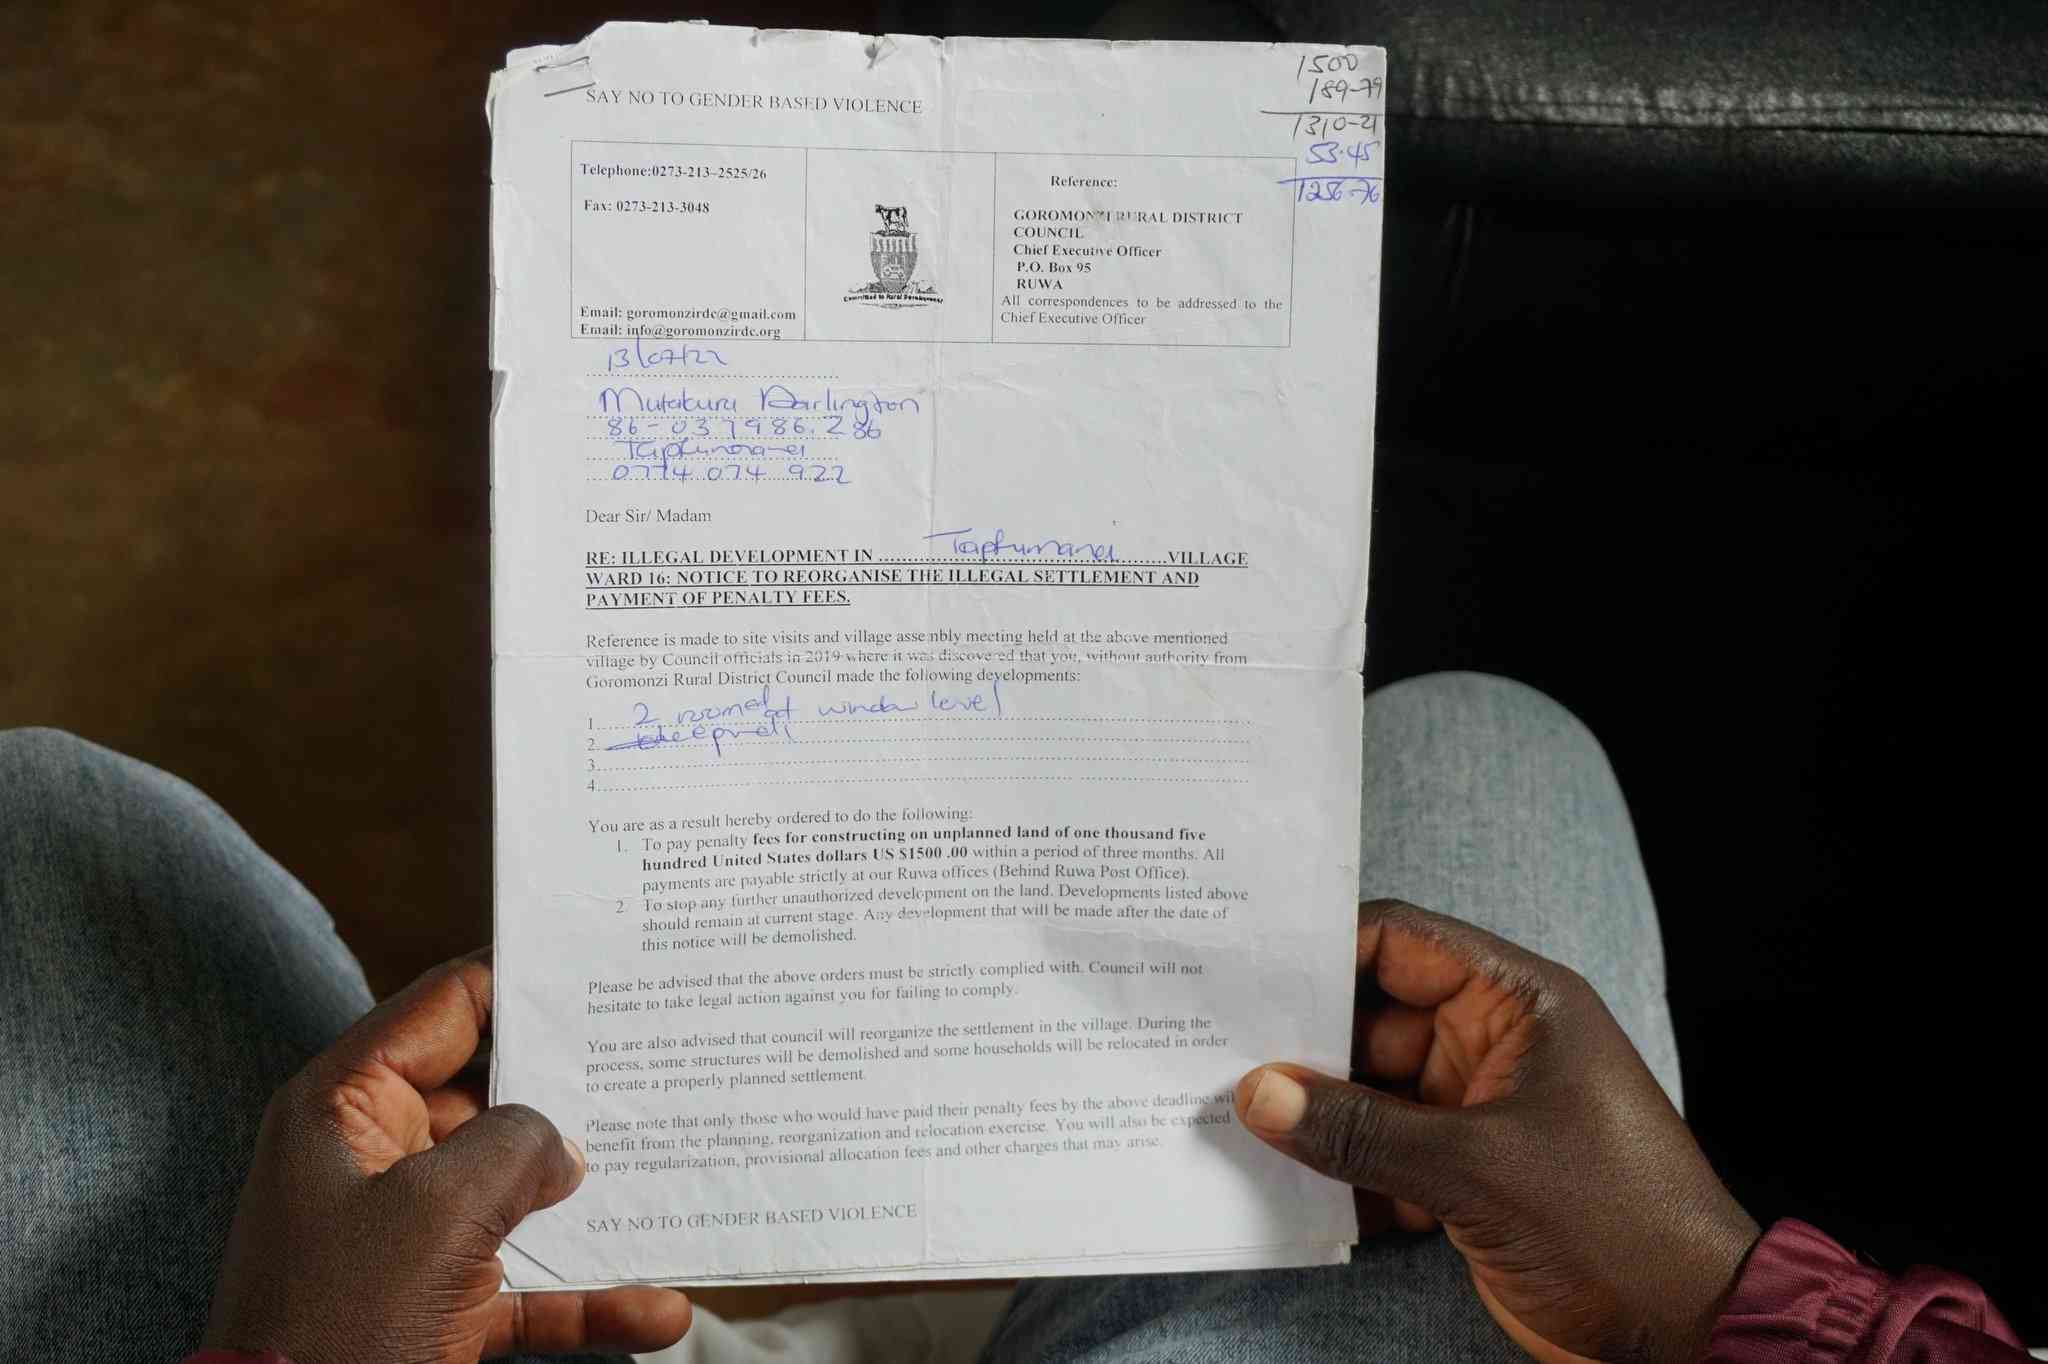 1500
189-79
1310-21
53.45
1256-76
SAY NO TO GENDER BASED VIOLENCE
Telephone:0273-213–2525/26
Fax: 0273-213-3048
Email: goromonzirdc@gmail.com
Email: info@goromonzirdc.org
Committed to Rural Development
Reference:
GOROMONZI RURAL DISTRICT
COUNCIL
Chief Executive Officer
P.O. Box 95
RUWA
All correspondences to be addressed to the
Chief Executive Officer
13/07/22
Mutakura Darlington
86-037986.Z86
Tapfumanei
0774 074 922
Dear Sir/ Madam
RE: ILLEGAL DEVELOPMENT IN Tapfumanei VILLAGE
WARD 16: NOTICE TO REORGANISE THE ILLEGAL SETTLEMENT AND
PAYMENT OF PENALTY FEES.
Reference is made to site visits and village assembly meeting held at the above mentioned
village by Council officials in 2019 where it was discovered that you, without authority from
Goromonzi Rural District Council made the following developments:
1. 2 roomed at window level
2.
3.
4.
You are as a result hereby ordered to do the following:
1. To pay penalty fees for constructing on unplanned land of one thousand five
hundred United States dollars US $1500 .00 within a period of three months. All
payments are payable strictly at our Ruwa offices (Behind Ruwa Post Office).
2. To stop any further unauthorized development on the land. Developments listed above
should remain at current stage. Any development that will be made after the date of
this notice will be demolished.
Please be advised that the above orders must be strictly complied with. Council will not
hesitate to take legal action against you for failing to comply.
You are also advised that council will reorganize the settlement in the village. During the
process, some structures will be demolished and some households will be relocated in order
to create a properly planned settlement.
Please note that only those who would have paid their penalty fees by the above deadline wil
benefit from the planning, reorganization and relocation exercise. You will also be expected
to pay regularization, provisional allocation fees and other charges that may arise.
SAY NO TO GENDER BASED VIOLENCE